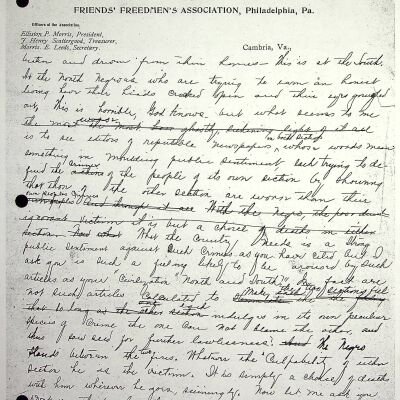 FRIENDS' FREEDMEN'S ASSOCIATION, Philadelphia, Pa.
Officers of the Association.
Elliston P. Morris, President,
J. Henry Scattergood, Treasurer,
Morris E. Leeds, Secretary.
Cambria, Va.,
and driven from their homes this is at the South.
At the North Negroes who are trying to earn an honest
living have their heads cracked open and their eyes gouged
out, This is horrible, God knows. but what seems to me
the most of it all
is to see editors of reputable newspapers, whose words mean
something in moulding public sentiment each trying to de
fend the crimes of the people of its own section by showing
that those of the other section are worse than their
own peoples crimes
ignorant victim it is but a choice of deaths in either
section. What the Country needs is a strong
public sentiment against such crimes as you have cited but I
ask you is such a feeling likely to be aroused by such
articles as yours "Civilization North and South"? Are
not such articles calculated to
so long as the other section indulges in its own peculiar
species of crime the one can not blame the other, and
thus is for further lawlessness? The Negro
stands between the two fires. Whatever the culpability of either
section he is the victim. It is simply a choice of deaths
with him wherever he goes, seemingly. Now let me ask you